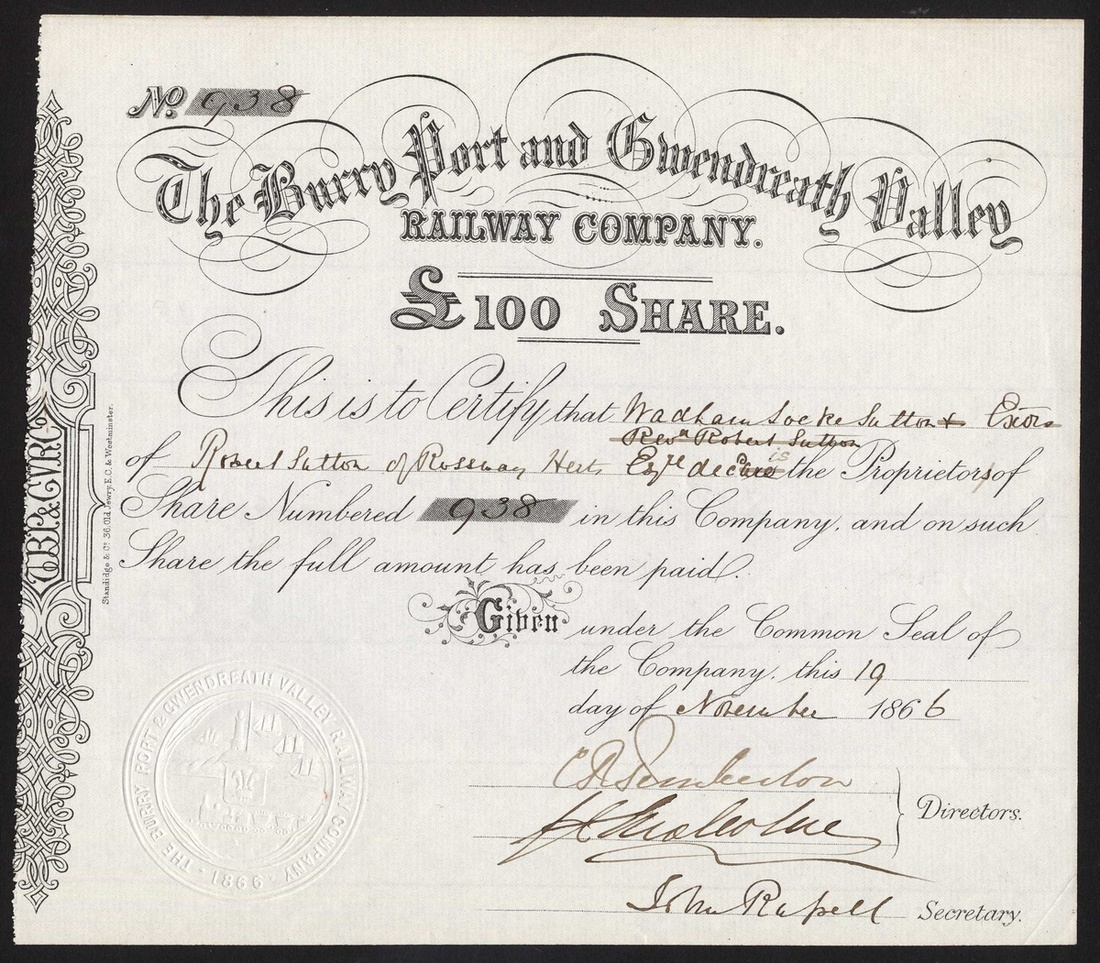 No. 938
The Burry Port and Gwendreath Valley
RAILWAY COMPANY.
£100 SHARE.
This is to Certify that Wadham Locke Sutton + Exors
Revd. Robert Sutton
of Robert Sutton of Rossway Herts Esqre decd is the Proprietors of
Share Numbered 938 in this Company, and on such
Share the full amount has been paid.
Given under the Common Seal of
the Company, this 19
day of November 1866
C R Pemberton
Directors.
John Russell Secretary.
THE BURRY PORT & GWENDREATH VALLEY RAILWAY COMPANY
· 1866 ·
T.B.P. & G.V.R.C.
Standidge & Co. 36, Old Jewry, E.C. & Westminster.